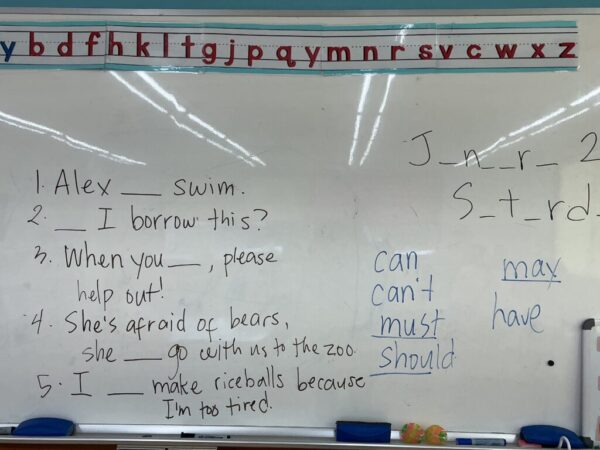 y b d f h k l t g j p q y m n r s v c w x z
J_n__r_ 2
S_t_rd_
1. Alex ___ swim.
2. __ I borrow this?
3. When you ___, please
help out!
4. She's afraid of bears,
she ___ go with us to the zoo.
5. I ___ make riceballs because
I'm too tired.
can
can't
must
should
may
have